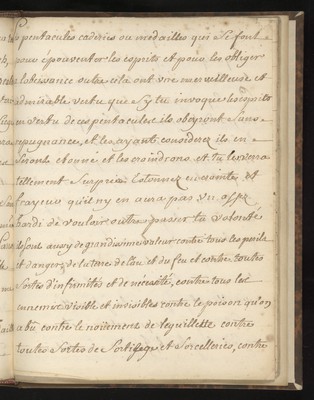 pentacules caderies ou médailles qui se font
pour épouventer les esprits et pour les obliger
labeissance outre cela ont vne merveilleuse et
admirable vertu que sy tu invoque les esprits
en vertu de ces pentacules ils obeyront sans
repugnance, et les ayant considerez ils en
seront etonné et les craindrons et tu les vera
tellement surpris estonnez craintes et
frayeur qu'il ny en aura pas vn assez
hardi de vouloir outrepasser ta volonté
Ils sont aussy de grandissime valeur contre tous les perils
et dangers de la terre de l'au et du feu et contre toutes
sortes d'infirmités et de nécesité, contre tous les
ennemis visible et inuisibles contre le poison qu'on
a bu contre le noüement de leguillette contre
toutes sortes de Sortileges et Sorcelleries, contre